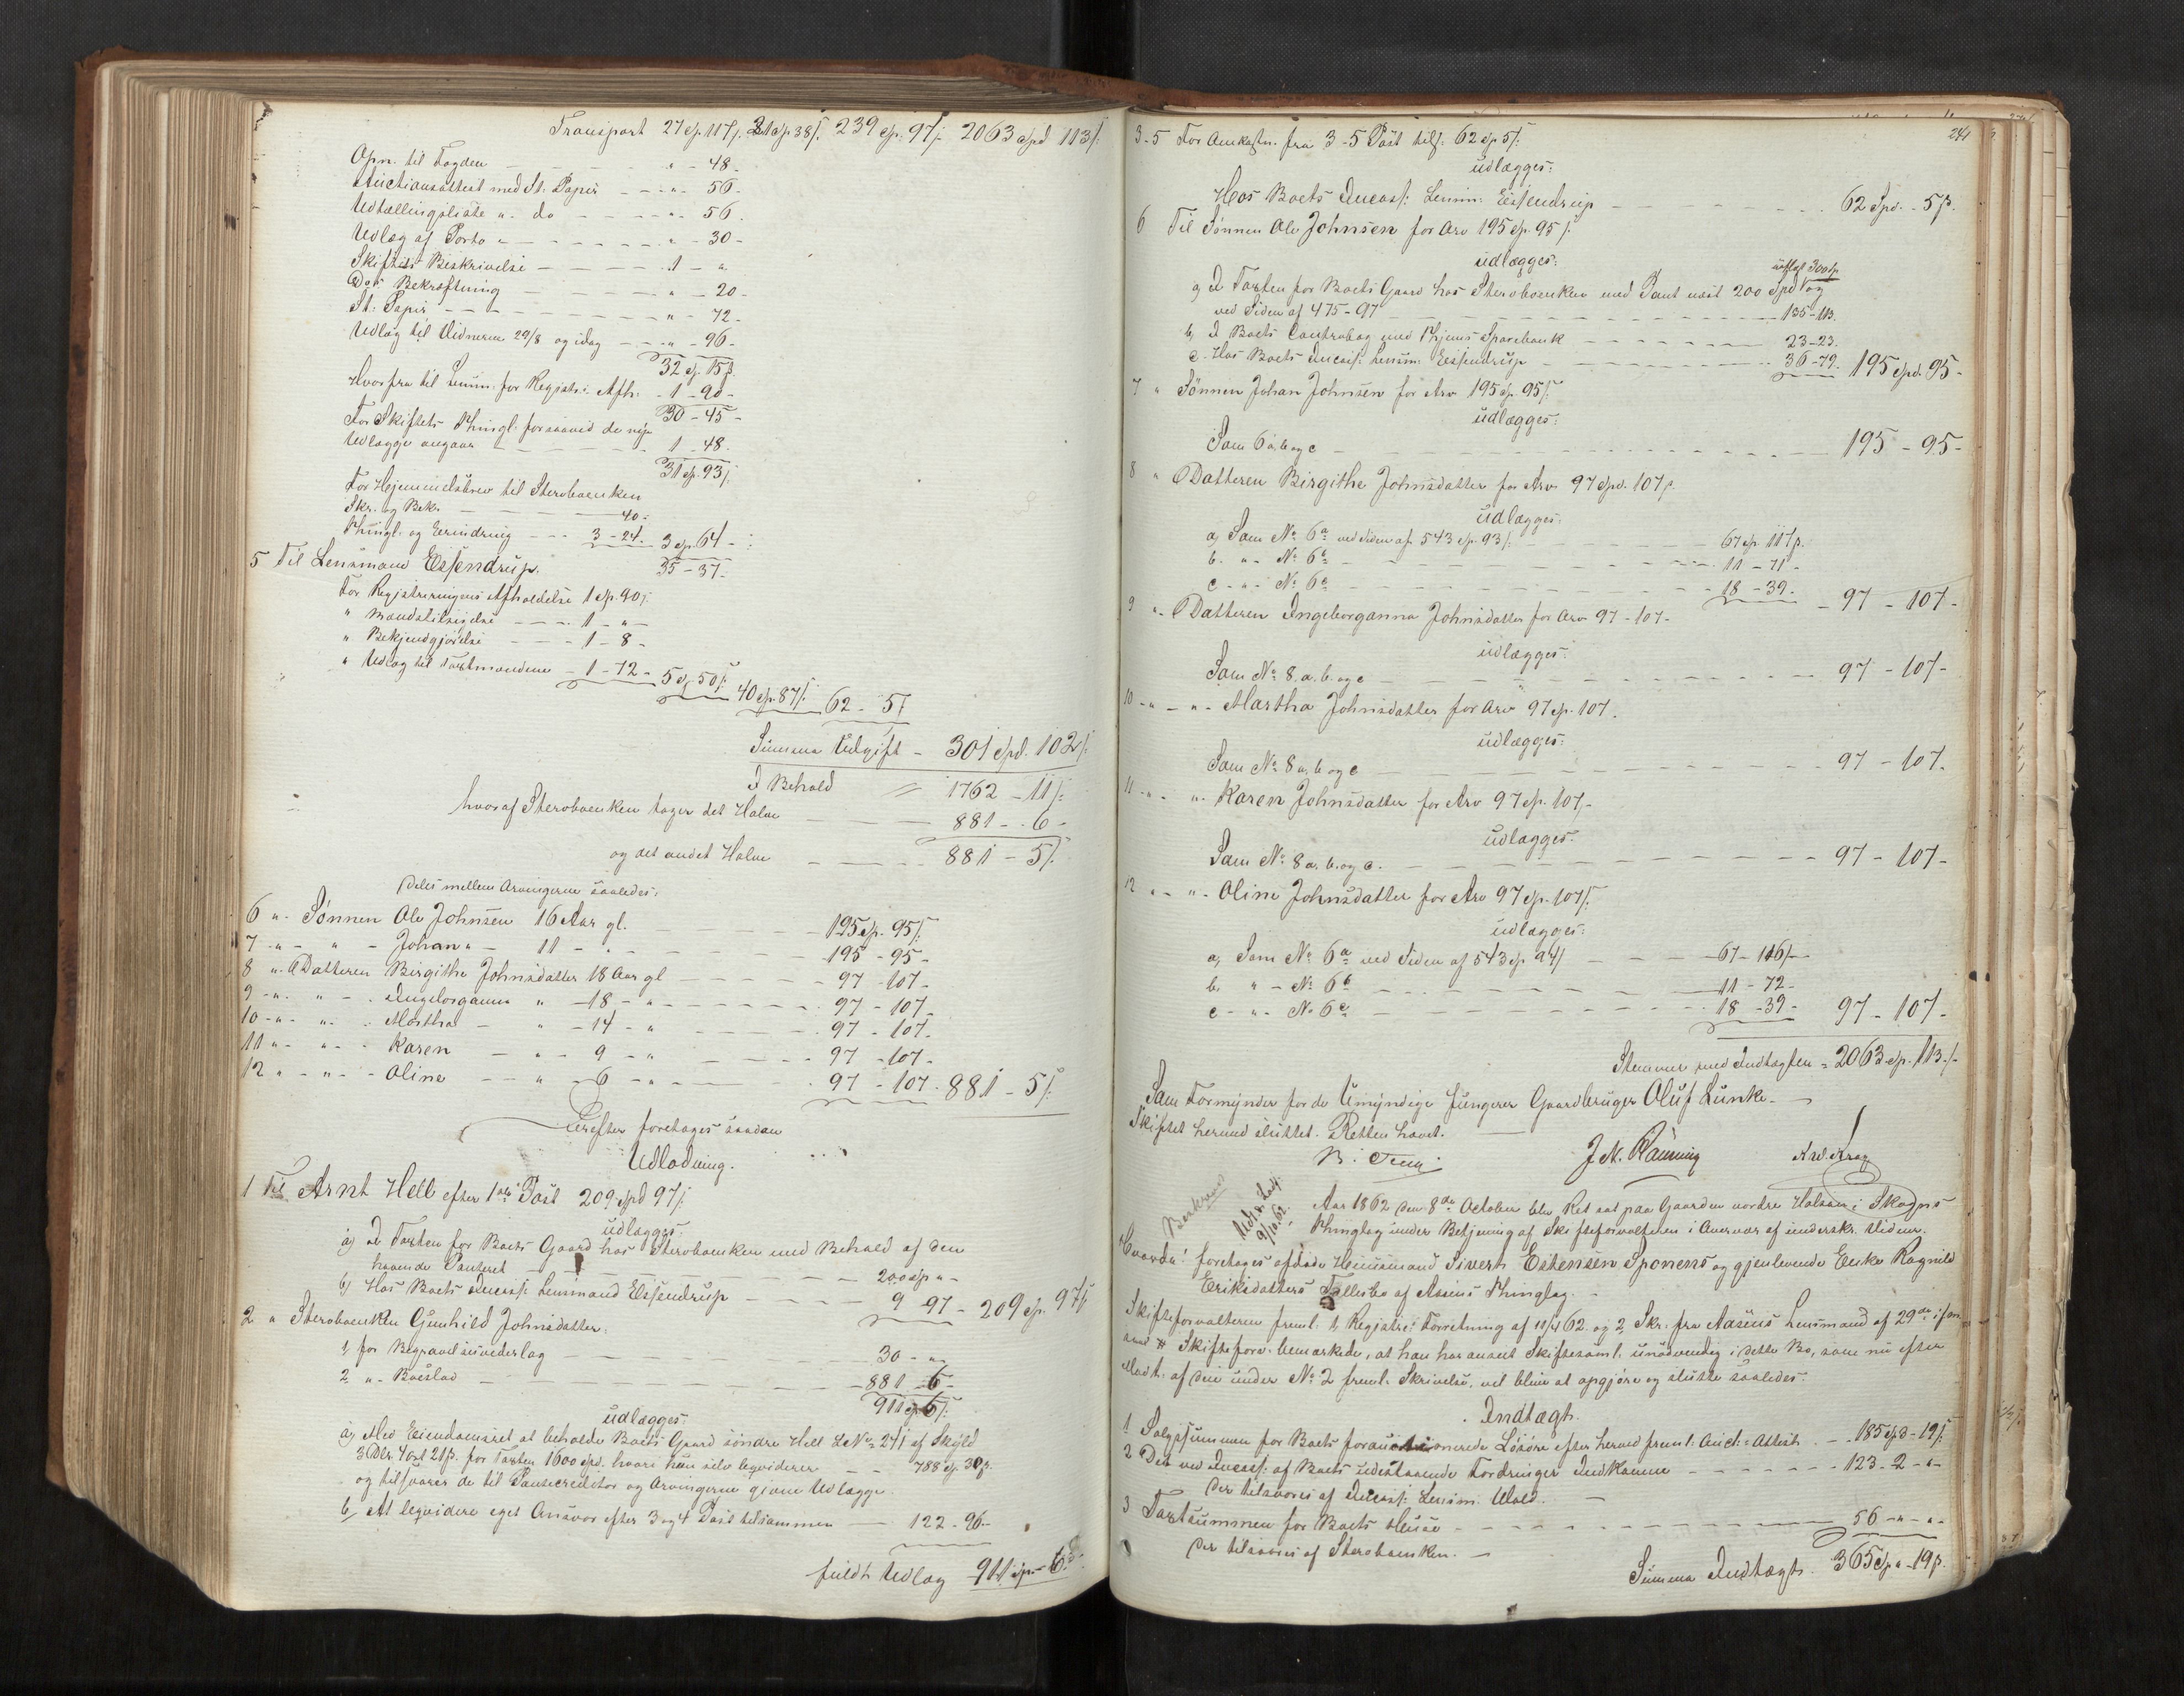 Transport 27 sp. 117 ß. 21 sp 38 ß. 239 sp. 97 ß. 2063 spd 113 ß.
Opn. til Fogden — „ - 48 -
Auctionsattest med St. Papir — „ - 56 -
Udtællingsliste „ do — „ - 56.
Udlæg af Porto „ — „ - 30 -
Skiftets Beskrivelse — 1 - „
Dets Bekræftning — „ - 20 -
St. Papir — „ - 72 -
Udlæg til Vidnerne 29/8 og idag — „ - 96 -
32 sp. 15 ß.
Hvorfra til Lensm. for Registr. Afh. - 1 - 90 -
30 - 45 -
For Skiftets Thingl. forsaavid de nye
Udlægge angaar — 1 - 48.
31 sp. 93 ß.
For Hjemmelsbrev til Sterboenken
Skr. og Bekr. — 40 -
Thingl. og Erindring — 3 - 24. 3 sp. 64 -
35 - 37 -
5 Til Lensmand Essendrup.
For Registreringens Afholdelse 1 sp. 90 ß.
„ Mandstilsigelse — 1 - „ -
„ Bekjendgjørelse — 1 - 8 -
„ Udlæg til Taxtmændene — 1 - 72 - 5 sp. 50 ß. 40 sp. 87 ß. 62 - 5 ß
Summa Udgift - 301 spd. 102 ß.
I Behold 1762 - 11 ß.
hvoraf Sterboenken tager det Halve — 881 - 6 -
og det andet Halve — 881 - 5 ß.
deles mellem Arvingerne saaledes:
6 „ Sønnen Ole Johnsen 16 Aar gl. — 195 sp. 95 ß.
7 „ - „ - Johan „ - 11 - „ — 195 - 95 -
8 „ Datteren Birgithe Johnsdatter 18 Aar gl — 97 - 107 -
9 - „ „ - Ingeborganna „ - 18 - „ — 97 - 107 -
10 - „ „ - Martha - „ - 14 - „ — 97 - 107 -
11 „ - „ - Karen - „ - 9 - „ — 97 - 107 -
12 „ - „ - Oline - „ - 6 - „ — 97 - 107 - 881 - 5 ß.
derefter foretages saadan
Udlodning.
1 Til Arnt Hell efter 1ste Post 209 spd 97 ß.
udlægges:
a) I Taxten for Boets Gaard hos Sterboenken med Behold af den
havende Panteret — 200 sp „ -
b) Hos Boets Incass. Lensmand Essendrup — 9 97 - 209 sp. 97 ß
2 „ Sterboenken Gunhild Johnsdatter.
1, for Begravelsesvederlag — 30 - „ -
2 „ - Boeslod — 881 - 6 -
911 sp 6 ß.
udlægges:
a) Med Eiendomsret at beholde Boets Gaard søndre Hell LNo 241 af Skyld
3 Dlr. 4 ort 21 ß. for Taxten 1600 spd. hvori hun selv leqviderer — 788 sp. 30 ß.
og tilsvarer de til Pantecreditor og Arvingerne givne Udlægge.
b) At leqvidere eget Ansvar efter 3 og 4 Post tilsammen — 122 - 96 -
fuldt Udlæg 911 sp. - 6 ß
241
3-5 For Omkostn. fra 3-5 Post tils. 62 sp 5 ß.
udlægges:
Hos Boets Incass. Lensm. Essendrup — 62 Spd. - 5 ß.
6 Til Sønnen Ole Johnsen for Arv 195 sp. 95 ß.
udlægges:
a) I Taxten for Boets Gaard hos Sterboenken med Pant næst 200 Spd og
ved Siden af 475 - 97 — 135 - 113.
b) I Boets Contrabog med Thjems Sparebank — 23 - 23.
c. Hos Boets Incass. Lensm. Essendrup — 36 - 79. 195 spd. 95 -
7 „ Sønnen Johan Johnsen for Arv 195 sp. 95 ß.
udlægges:
Som 6 a. b. og c — 195 - 95 -
8 „ Datteren Birgithe Johnsdatter for Arv 97 spd. 107 ß.
udlægges:
a, Som No 6a ved Siden af 543 sp. 93 ß. — 67 sp. 117 ß.
b. „ - No 6b — 11 - 71 -
c - „ - No 6c — 18 - 39. - 97 - 107 -
9 „ Datteren Ingeborganna Johnsdatter for Arv 97 - 107 -
udlægges:
Som No 8. a. b. og c — 97 - 107 -
10 - „ - „ - Martha Johnsdatter for Arv 97 sp. 107.
udlægges:
Som No 8 a. b og c — 97 - 107.
11 - „ - „ - Karen Johnsdatter for Arv 97 sp. 107. -
udlægges.
Som No 8 a. b. og c. — 97 - 107 -
12 „ - „ - Oline Johnsdatter for Arv 97 sp. 107 ß.
udlægges:
a, Som No 6a ved Siden af 543 sp. 94 ß — 67 - 116 ß
b. „ - No 6b — 11 - 72 -
c - „ - No 6c — 18 - 39 - 97 - 107 -
Stemmer med Indtægten = 2063 sp. 113 ß
Som Formynder for de Umyndige fungerer Gaardbruger Oluf Lunke.
Skiftet hermed sluttet. Retten hævet.
J. N. Rønning
Beskreven
Udt. 9/10 62.
Aar 1862 den 8de October blev Ret sat paa Gaarden nordre Holsan i Skogns
Thinglag under Betjening af Skifteforvalteren i Overvær af underskr. Vidner.
Hvorda: foretages afdøde Huusmand Sivert Estensen Sponens og gjenlevende Enke Ragnild
Eriksdatters Fællesbo af Aasens Thinglag.
Skifteforvalteren freml. 1, Registr. Forretning af 11/4 62. og 2, Skr. fra Aasens Lensmand af 29de
Skifteforv. bemærkede, at han har anseet Skiftesaml. unødvendig i dette Bo, som nu efter
Modt. af den under No 2 freml. Skrivelse, vil blive at opgjøre og slutte saaledes:
Indtægt.
1 Salgssummen for Boets forauctionerede Løsøre efter hermed freml. Auct. Attest — 185 spd - 19 ß.
2 Det ved Incass. af Boets udestaaende Fordringer Indkomne — 123 - 2 - „ -
Der tilsvares af Incass. Lensm. Wold. —
3 Taxtsummen for Boets Huse — 56 - „ - „ -
Der tilsvares af Sterboenken. —
Summa Indtægt. 365 Sp „ - 19 ß.